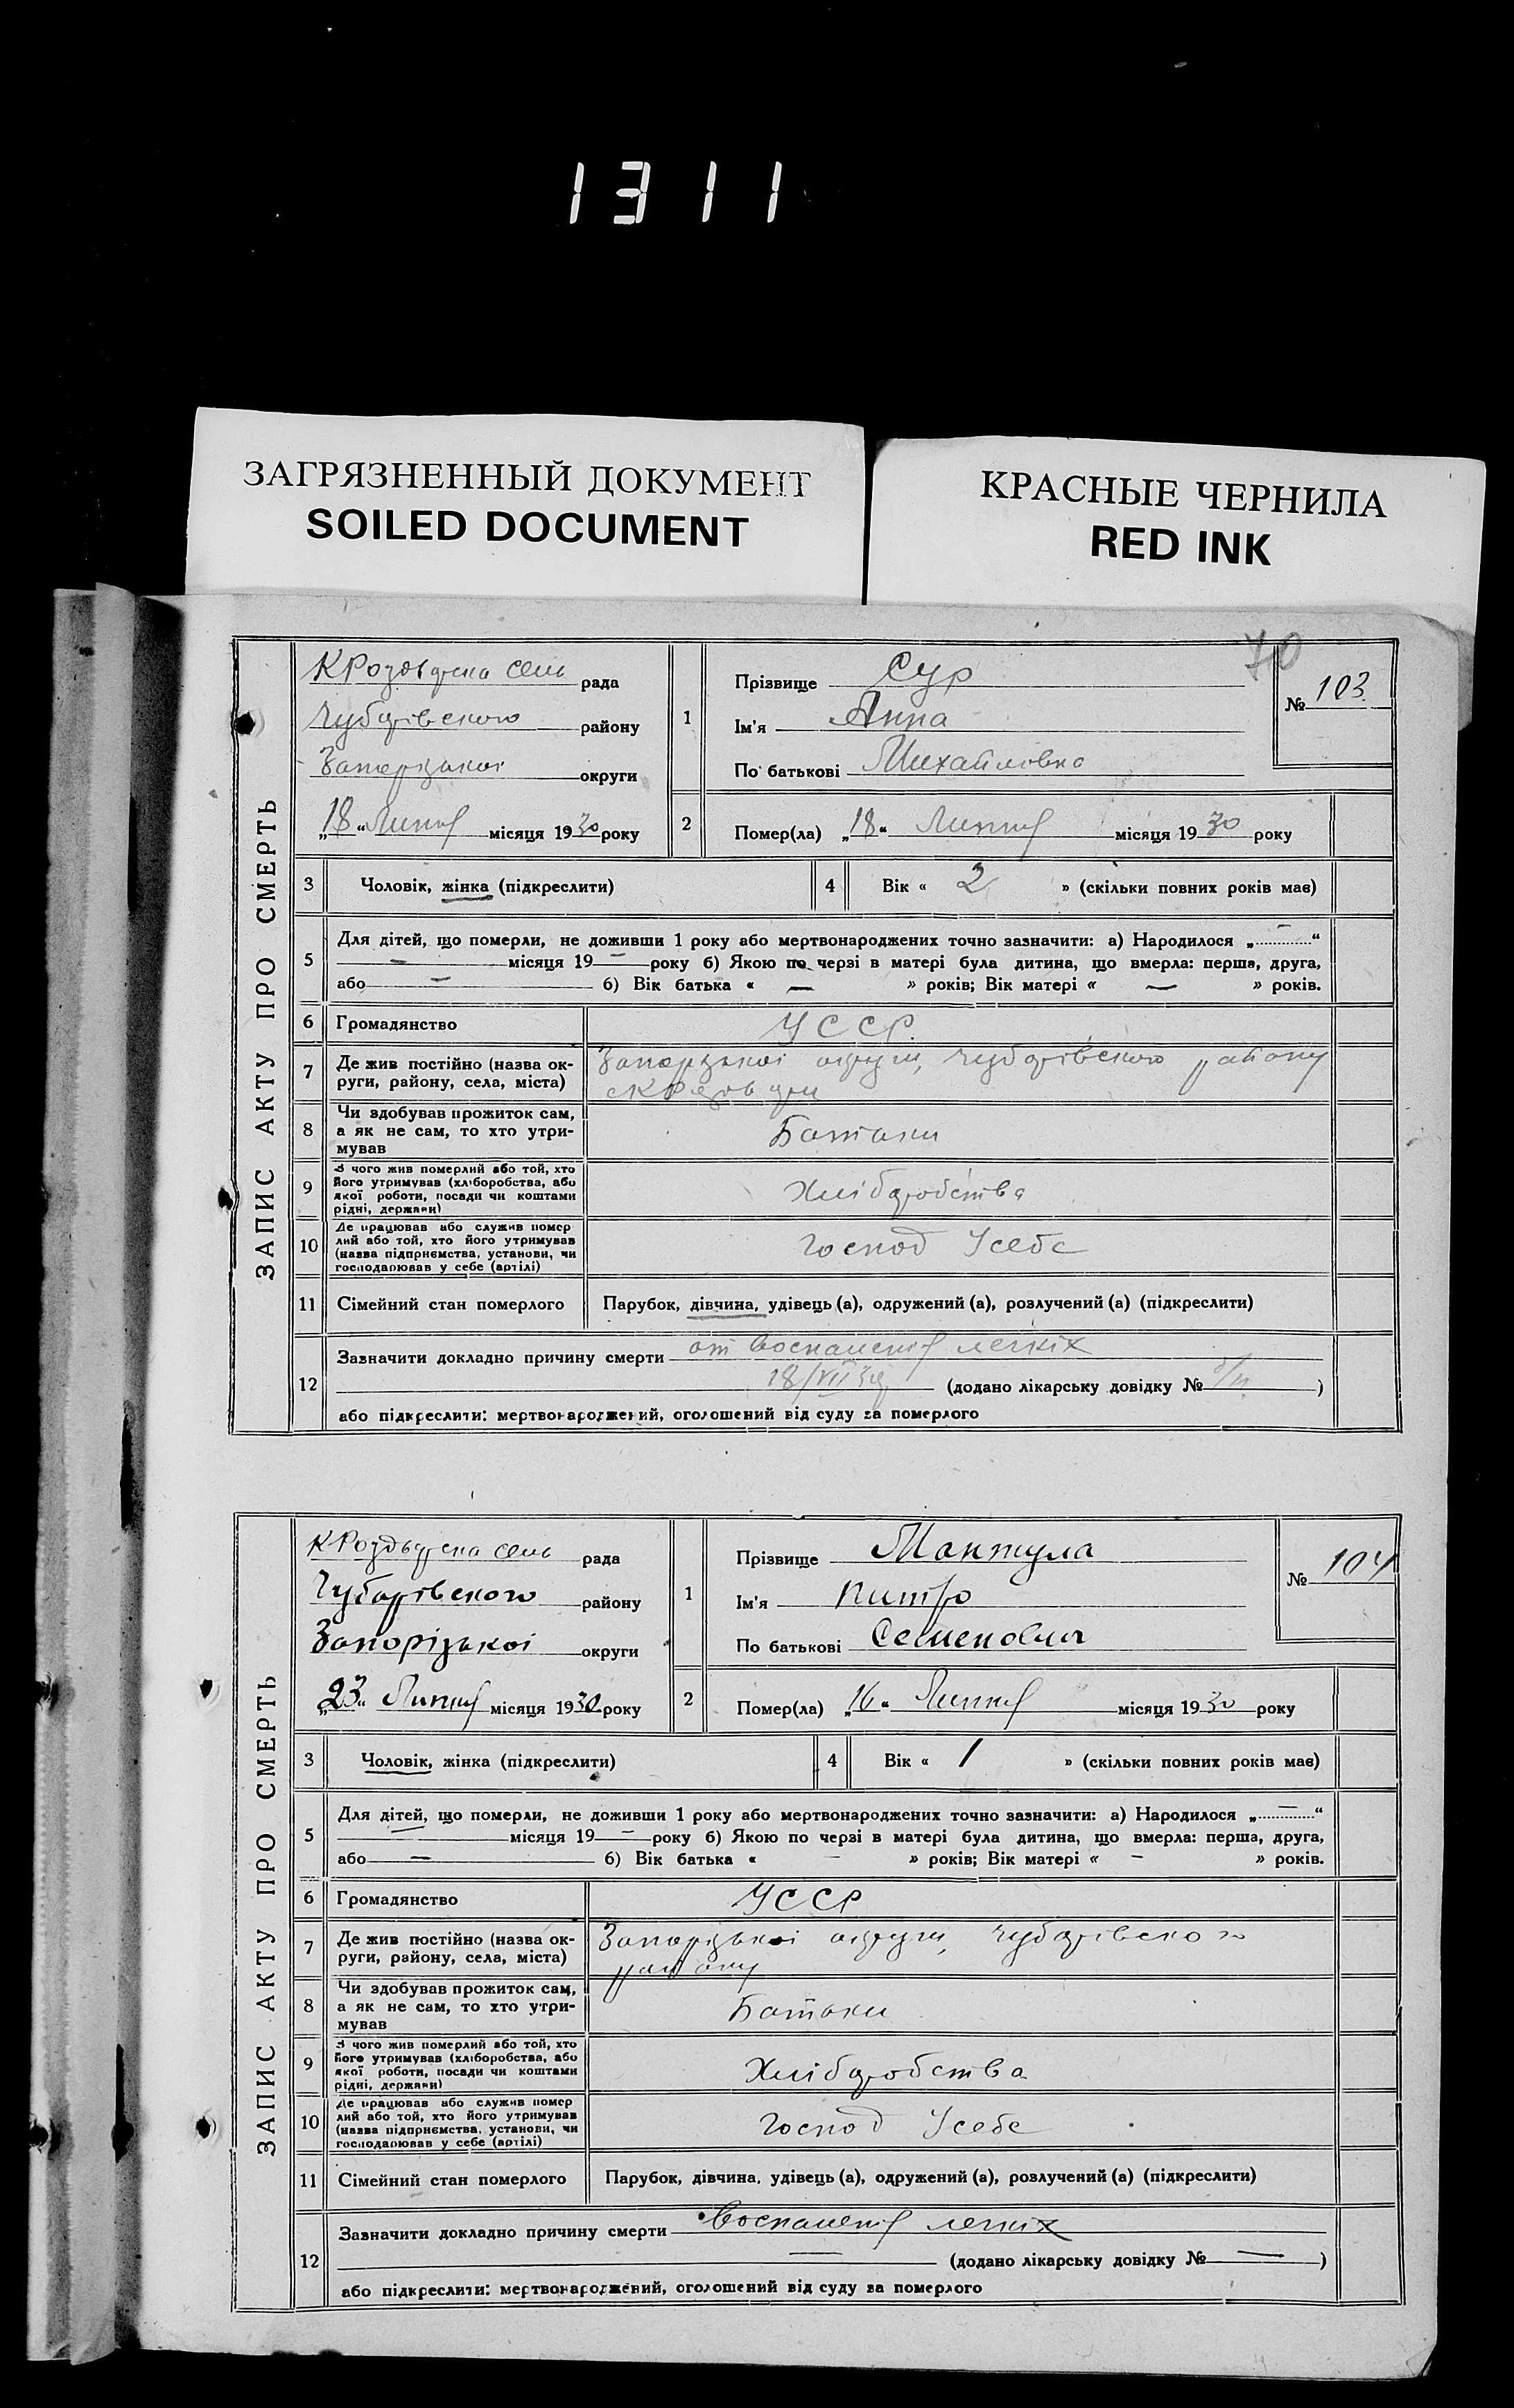 1311
ЗАГРЯЗНЕННЫЙ ДОКУМЕНТ
SOILED DOCUMENT
КРАСНЫЕ ЧЕРНИЛА
RED INK
70
ЗАПИС АКТУ ПРО СМЕРТЬ
рада
Чубарівського району
Запорізької округи
„18“ Липня місяця 1930 року
1
Прізвище Сур
Ім'я Анна
По батькові Михайловна
№ 103
2
Помер(ла) „18“ Липня місяця 1930 року
3 Чоловік, жінка (підкреслити)
4 Вік « 2 » (скільки повних років має)
5
Для дітей, що померли, не доживши 1 року або мертвонароджених точно зазначити: а) Народилося „ — “
— місяця 19 — року б) Якою по черзі в матері була дитина, що вмерла: перша, друга,
або — б) Вік батька « — » років; Вік матері « — » років.
6 Громадянство УССР
7
Де жив постійно (назва ок-
руги, району, села, міста)
Запорізької округи, Чубарівського району
8
Чи здобував прожиток сам,
а як не сам, то хто утри-
мував
Батьки
9
З чого жив померлий або той, хто
його утримував (хліборобства, або
якої роботи, посади чи коштами
рідні, держави)
Хліборобства
10
Де працював або служив помер
лий або той, хто його утримував
(назва підприємства, установи, чи
господарював у себе (артілі)
Господ Усебе
11 Сімейний стан померлого Парубок, дівчина, удівець (а), одружений (а), розлучений (а) (підкреслити)
12
Зазначити докладно причину смерти от воспаления легкіх
18/VII 30 (додано лікарську довідку № )
або підкреслити: мертвонароджений, оголошений від суду за померлого
ЗАПИС АКТУ ПРО СМЕРТЬ
рада
Чубарівського району
Запорізької округи
„23“ Липня місяця 1930 року
1
Прізвище Манжула
Ім'я Питро
По батькові Семенович
№ 104
2
Помер(ла) „16“ Липня місяця 1930 року
3 Чоловік, жінка (підкреслити)
4 Вік « 1 » (скільки повних років має)
5
Для дітей, що померли, не доживши 1 року або мертвонароджених точно зазначити: а) Народилося „ — “
— місяця 19 — року б) Якою по черзі в матері була дитина, що вмерла: перша, друга,
або — б) Вік батька « — » років; Вік матері « — » років.
6 Громадянство УССР
7
Де жив постійно (назва ок-
руги, району, села, міста)
Запорізької округи, Чубарівського
району
8
Чи здобував прожиток сам,
а як не сам, то хто утри-
мував
Батьки
9
З чого жив померлий або той, хто
його утримував (хліборобства, або
якої роботи, посади чи коштами
рідні, держави)
Хліборобства
10
Де працював або служив помер
лий або той, хто його утримував
(назва підприємства, установи, чи
господарював у себе (артілі)
Господ Усебе
11 Сімейний стан померлого Парубок, дівчина, удівець (а), одружений (а), розлучений (а) (підкреслити)
12
Зазначити докладно причину смерти воспаления легкіх
— (додано лікарську довідку № — )
або підкреслити: мертвонароджений, оголошений від суду за померлого